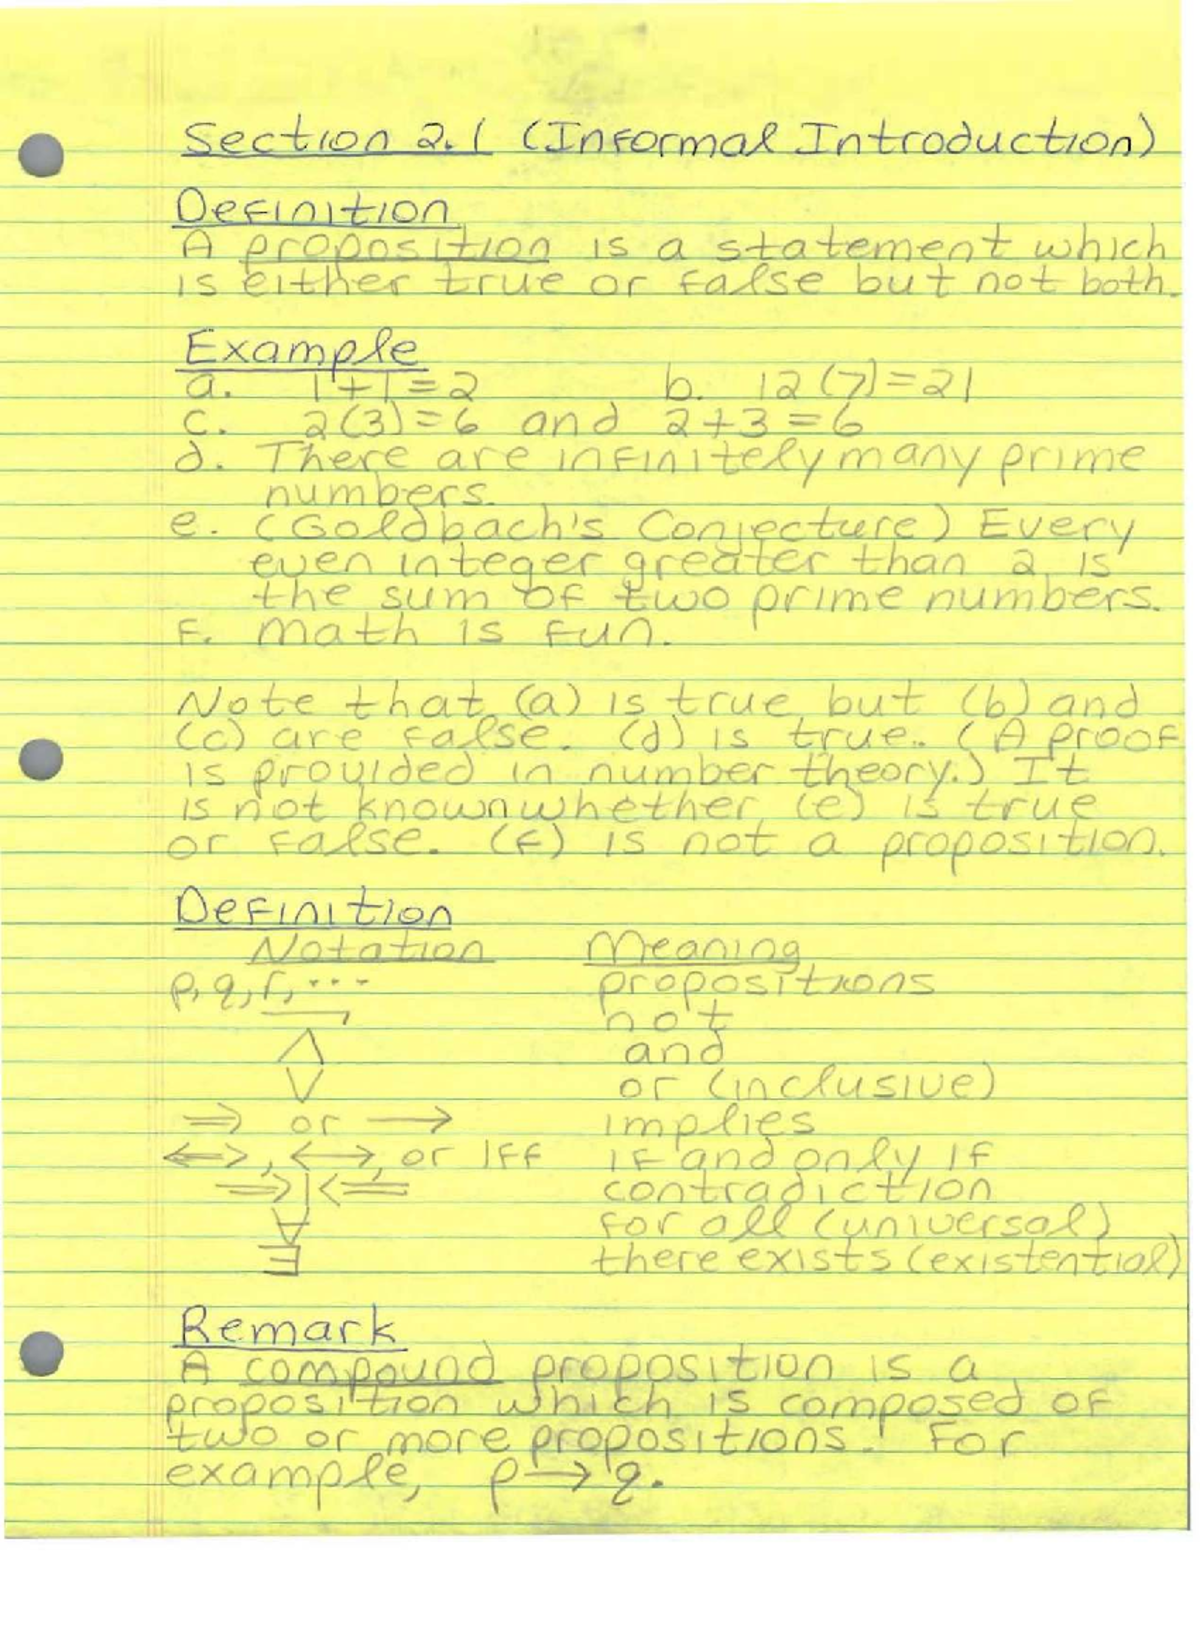 Section 2.1 (Informal Introduction)
Definition
A proposition is a statement which
is either true or false but not both.
Example
a. 1+1=2 b. 12(7)=21
c. 2(3)=6 and 2+3=6
d. There are infinitely many prime
numbers.
e. (Goldbach's Conjecture) Every
even integer greater than 2 is
the sum of two prime numbers.
f. Math is fun.
Note that (a) is true but (b) and
(c) are false. (d) is true. (A proof
is provided in number theory.) It
is not known whether (e) is true
or false. (f) is not a proposition.
Definition
Notation Meaning
p, q, r, ... propositions
¬ not
∧ and
∨ or (inclusive)
⇒ or → implies
⇔, ↔, or iff if and only if
⇒|⇐ contradiction
∀ for all (universal)
∃ there exists (existential)
Remark
A compound proposition is a
proposition which is composed of
two or more propositions. For
example, p → q.